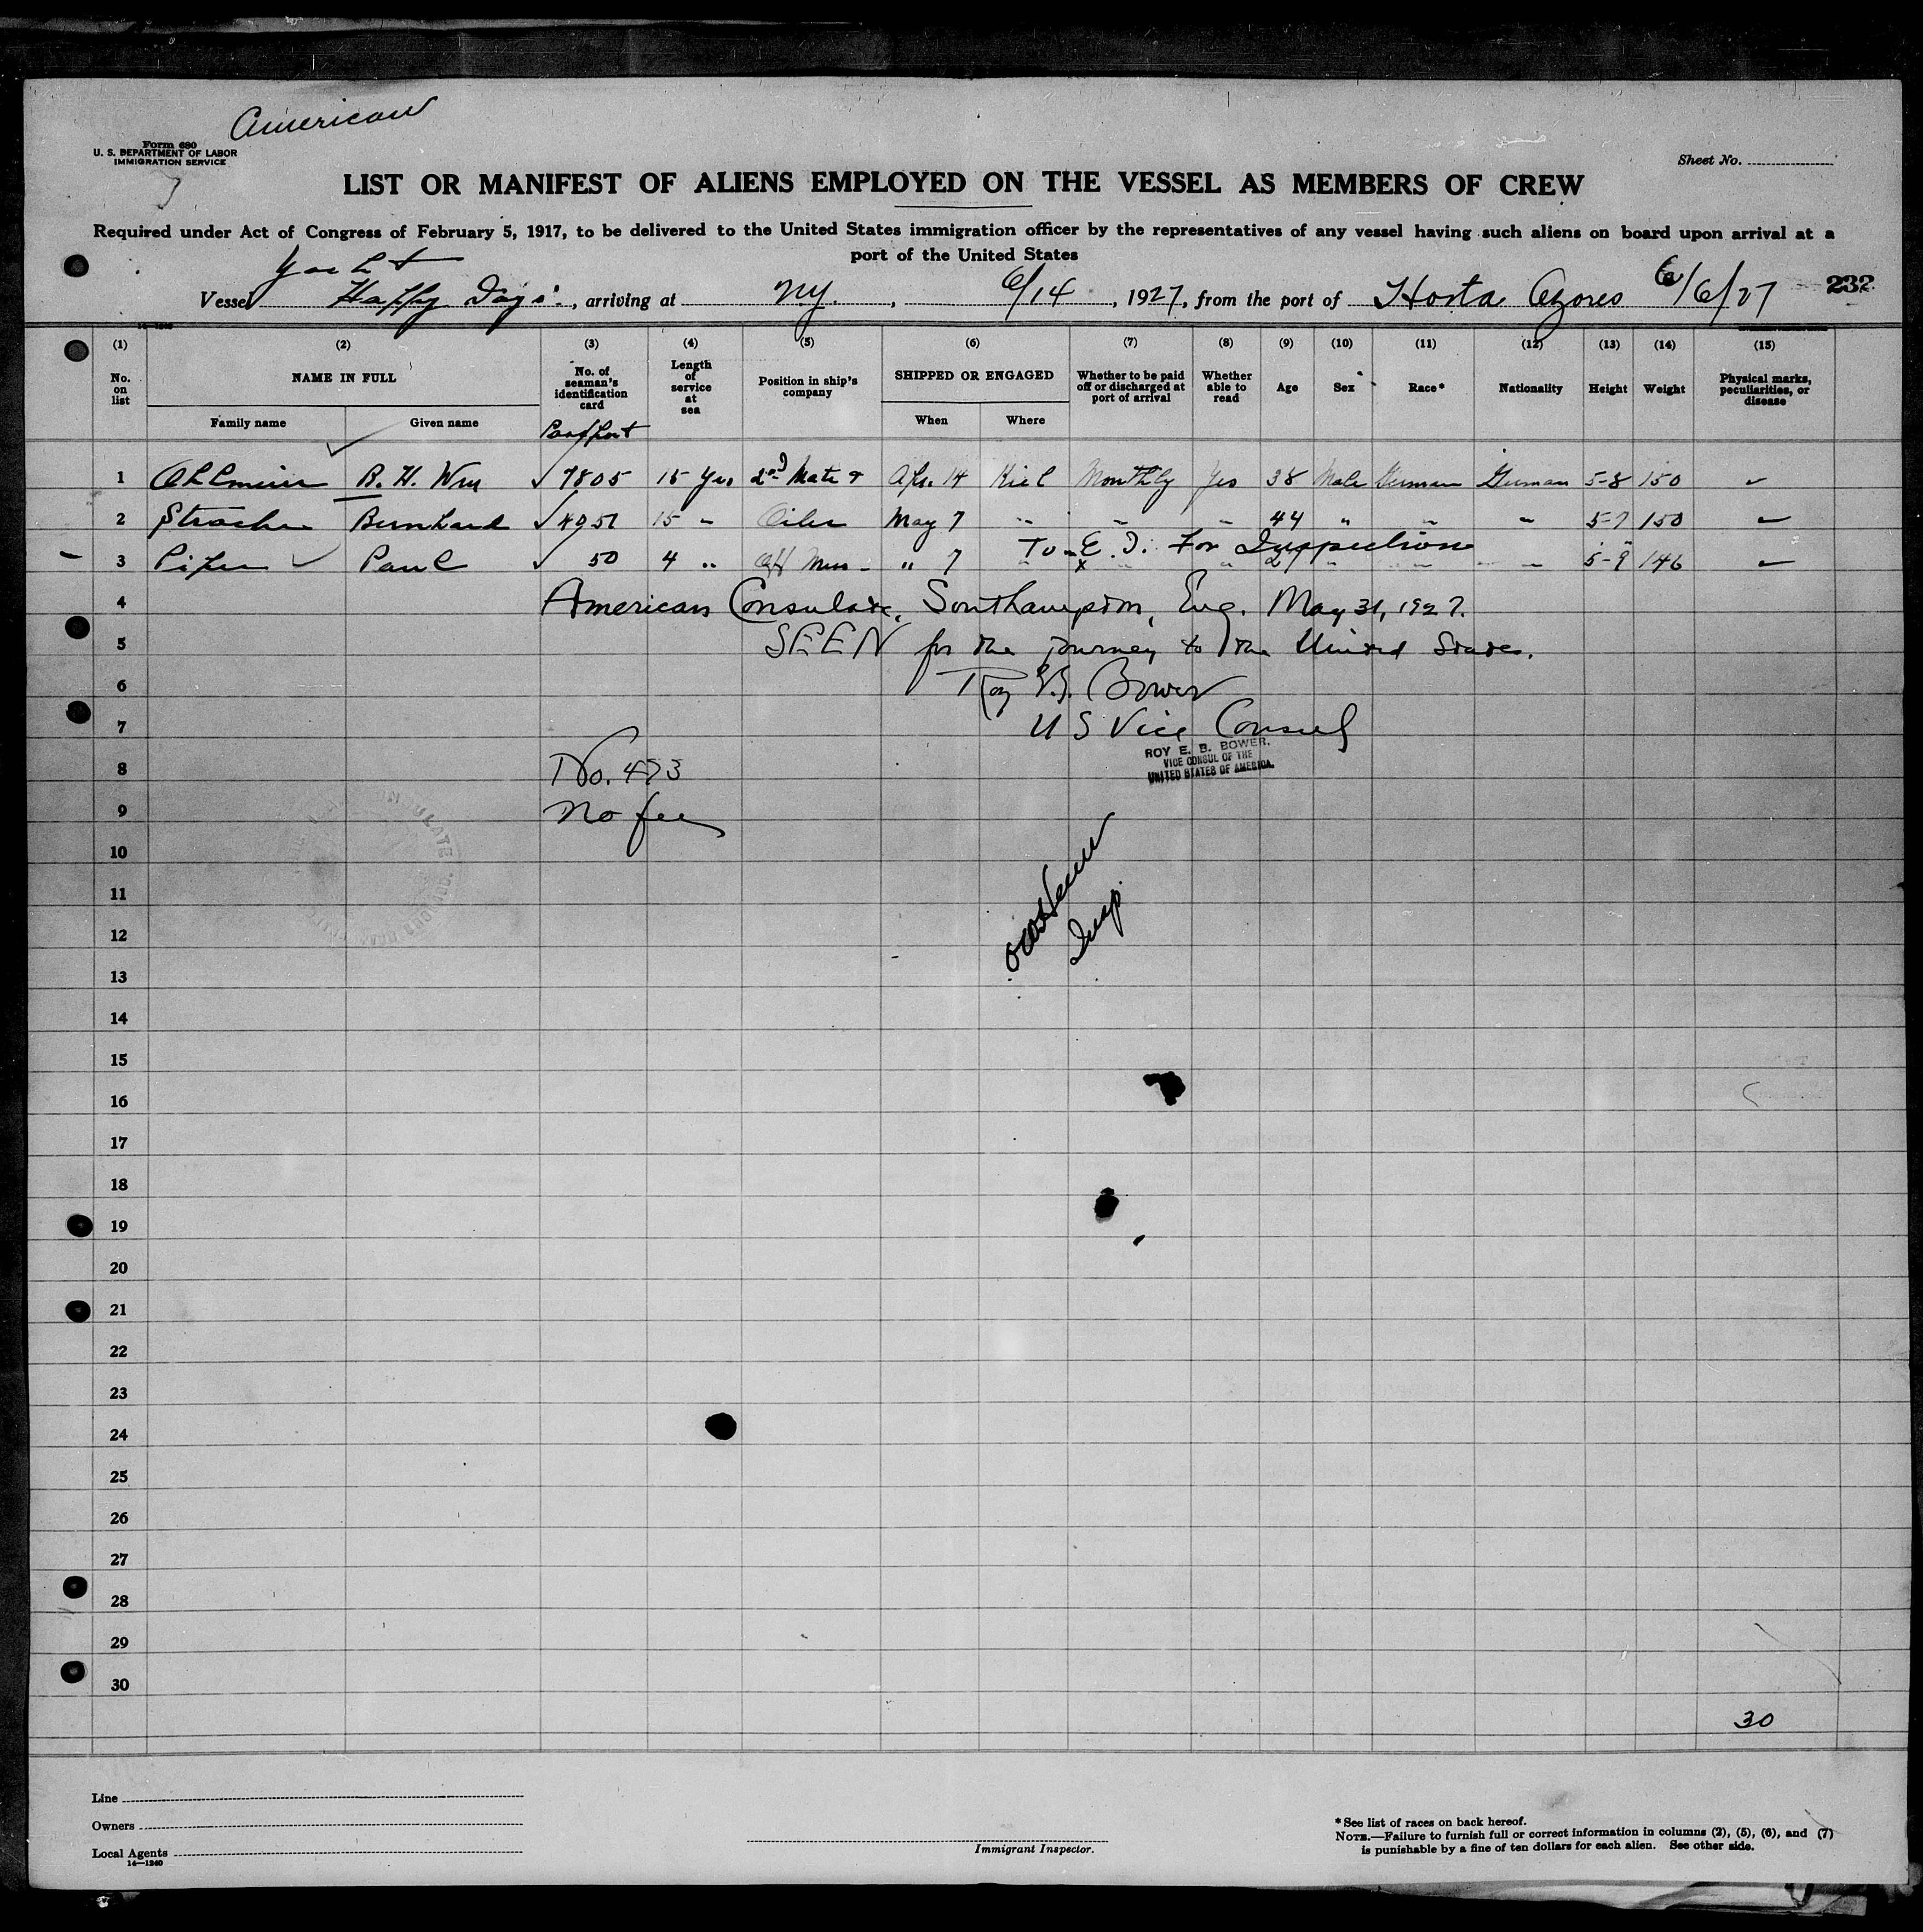 American
Form 680
U. S. DEPARTMENT OF LABOR
IMMIGRATION SERVICE
Sheet No.
LIST OR MANIFEST OF ALIENS EMPLOYED ON THE VESSEL AS MEMBERS OF CREW
Required under Act of Congress of February 5, 1917, to be delivered to the United States immigration officer by the representatives of any vessel having such aliens on board upon arrival at a
port of the United States
Yacht
Vessel Happy Days, arriving at N.Y., 6/14, 1927, from the port of Horta Azores 6/6/27 232
(1) (2) (3) (4) (5) (6) (7) (8) (9) (10) (11) (12) (13) (14) (15)
No. on list NAME IN FULL No. of seaman's identification card Length of service at sea Position in ship's company SHIPPED OR ENGAGED Whether to be paid off or discharged at port of arrival Whether able to read Age Sex Race* Nationality Height Weight Physical marks, peculiarities, or disease
Family name Given name Passport When Where
1 R. H. Wm 7805 15 Yrs 2nd Mate Apr. 14 Kiel Monthly Yes 38 Male German German 5-8 150
2 Bernhard 15 " Oiler May 7 " " " 44 " " " 5-7 150
To E. I. For Inspection
3 Paul 50 4 " Mess " 7 " " " 27 " " " 5-9 146
4 American Consulate, Southampton, Eng. May 31, 1927.
5 SEEN for the journey to the United States.
6 Roy E. B. Bower
7 U S Vice Consul
ROY E. B. BOWER,
VICE CONSUL OF THE
UNITED STATES OF AMERICA.
8 No. 473
9 No fee
10
11
Insp.
12
13
14
15
16
17
18
19
20
21
22
23
24
25
26
27
28
29
30
30
Line
Owners
Local Agents
14—1240
Immigrant Inspector.
* See list of races on back hereof.
NOTE.—Failure to furnish full or correct information in columns (2), (5), (6), and (7)
is punishable by a fine of ten dollars for each alien. See other side.